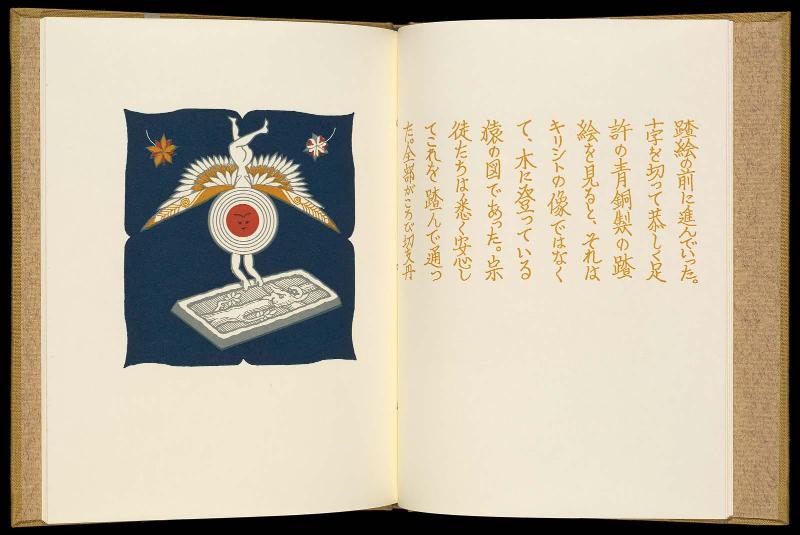 踏絵の前に進んでいった。
十字を切って恭しく足
許の青銅製の踏
絵を見ると、それは
キリシトの像ではなく
て、木に登っている
猿の図であった。宗
徒たちは悉く安心し
てこれを踏んで通っ
た。全部がころび切支丹